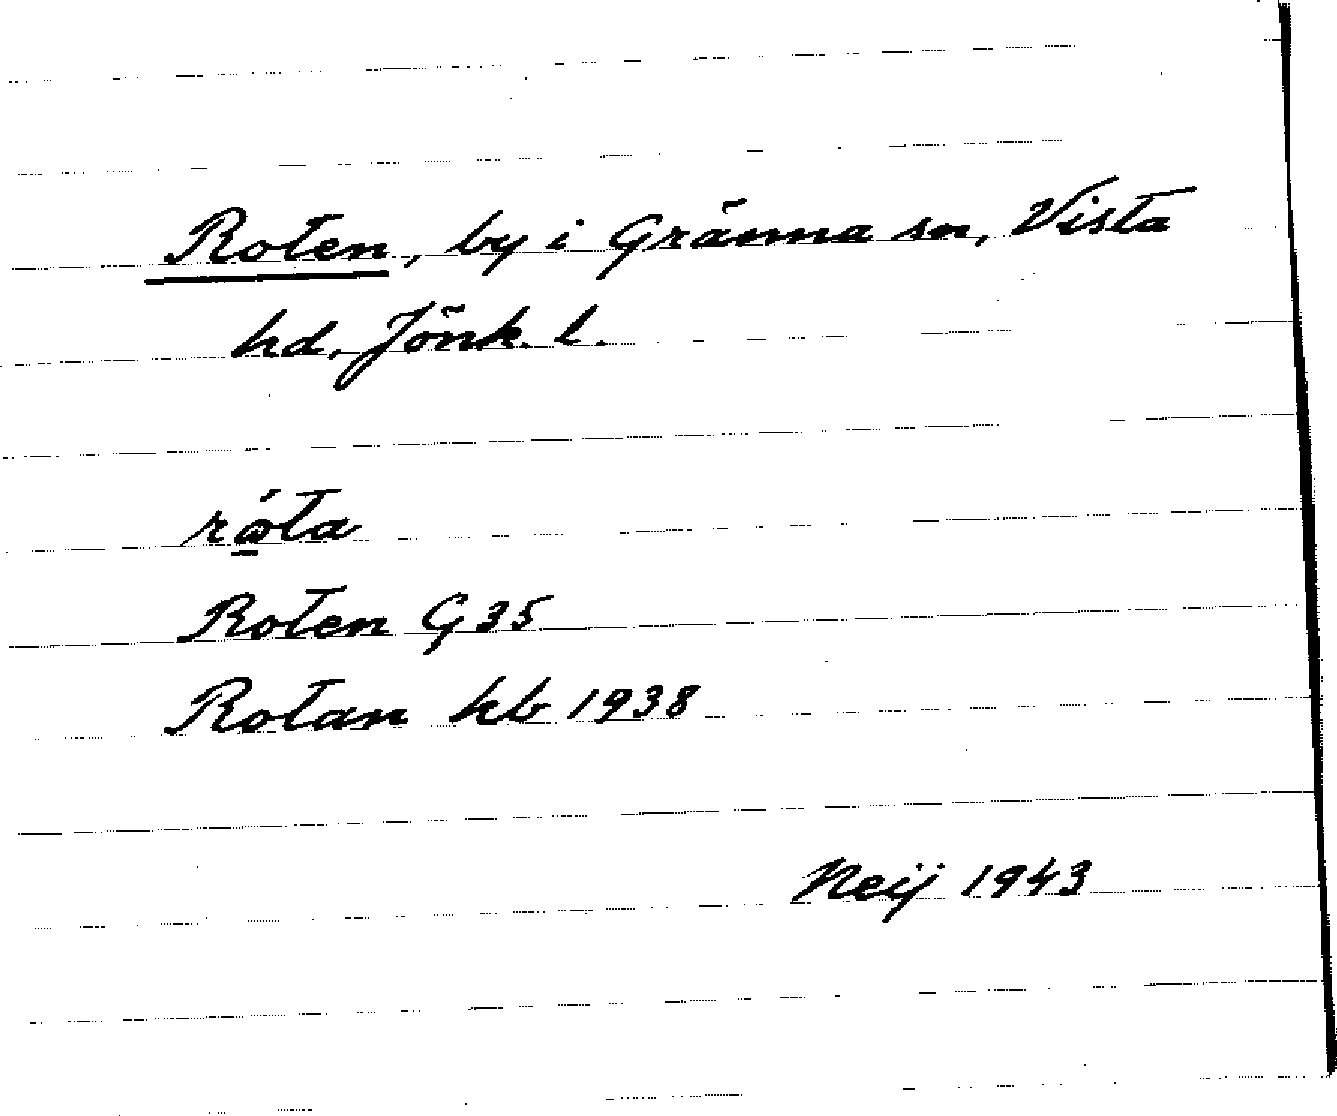 Roten, by i Gränna sn, Vista
hd, Jönk. l.
Roten G 35
Rotan kb 1938
Neij 1943